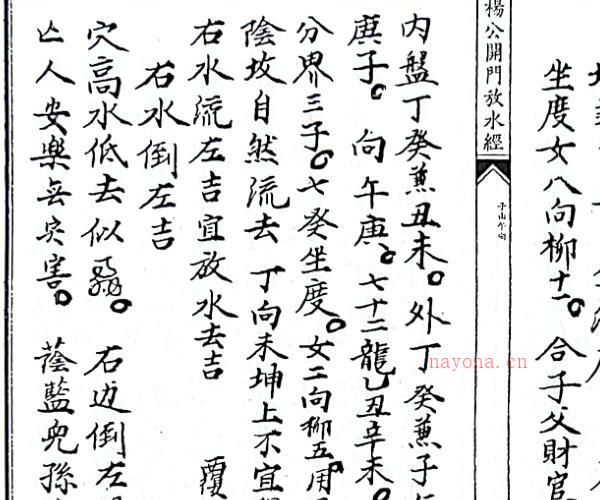 坐度女八向柳十一。合子父財官
楊公開門放水經
子山午向
内盤丁癸兼丑未。外丁癸兼子
庚子。向午庚。七十二龍乙丑辛未。
分界三子。七癸坐度。女二向柳五。用
陰坟自然流去 丁向未坤上不宜
右水流左吉宜放水去吉 覆
右水倒左吉
穴高水低去似 右边倒左
亡人安樂無灾害。蔭藍兒孫
nayona.cn